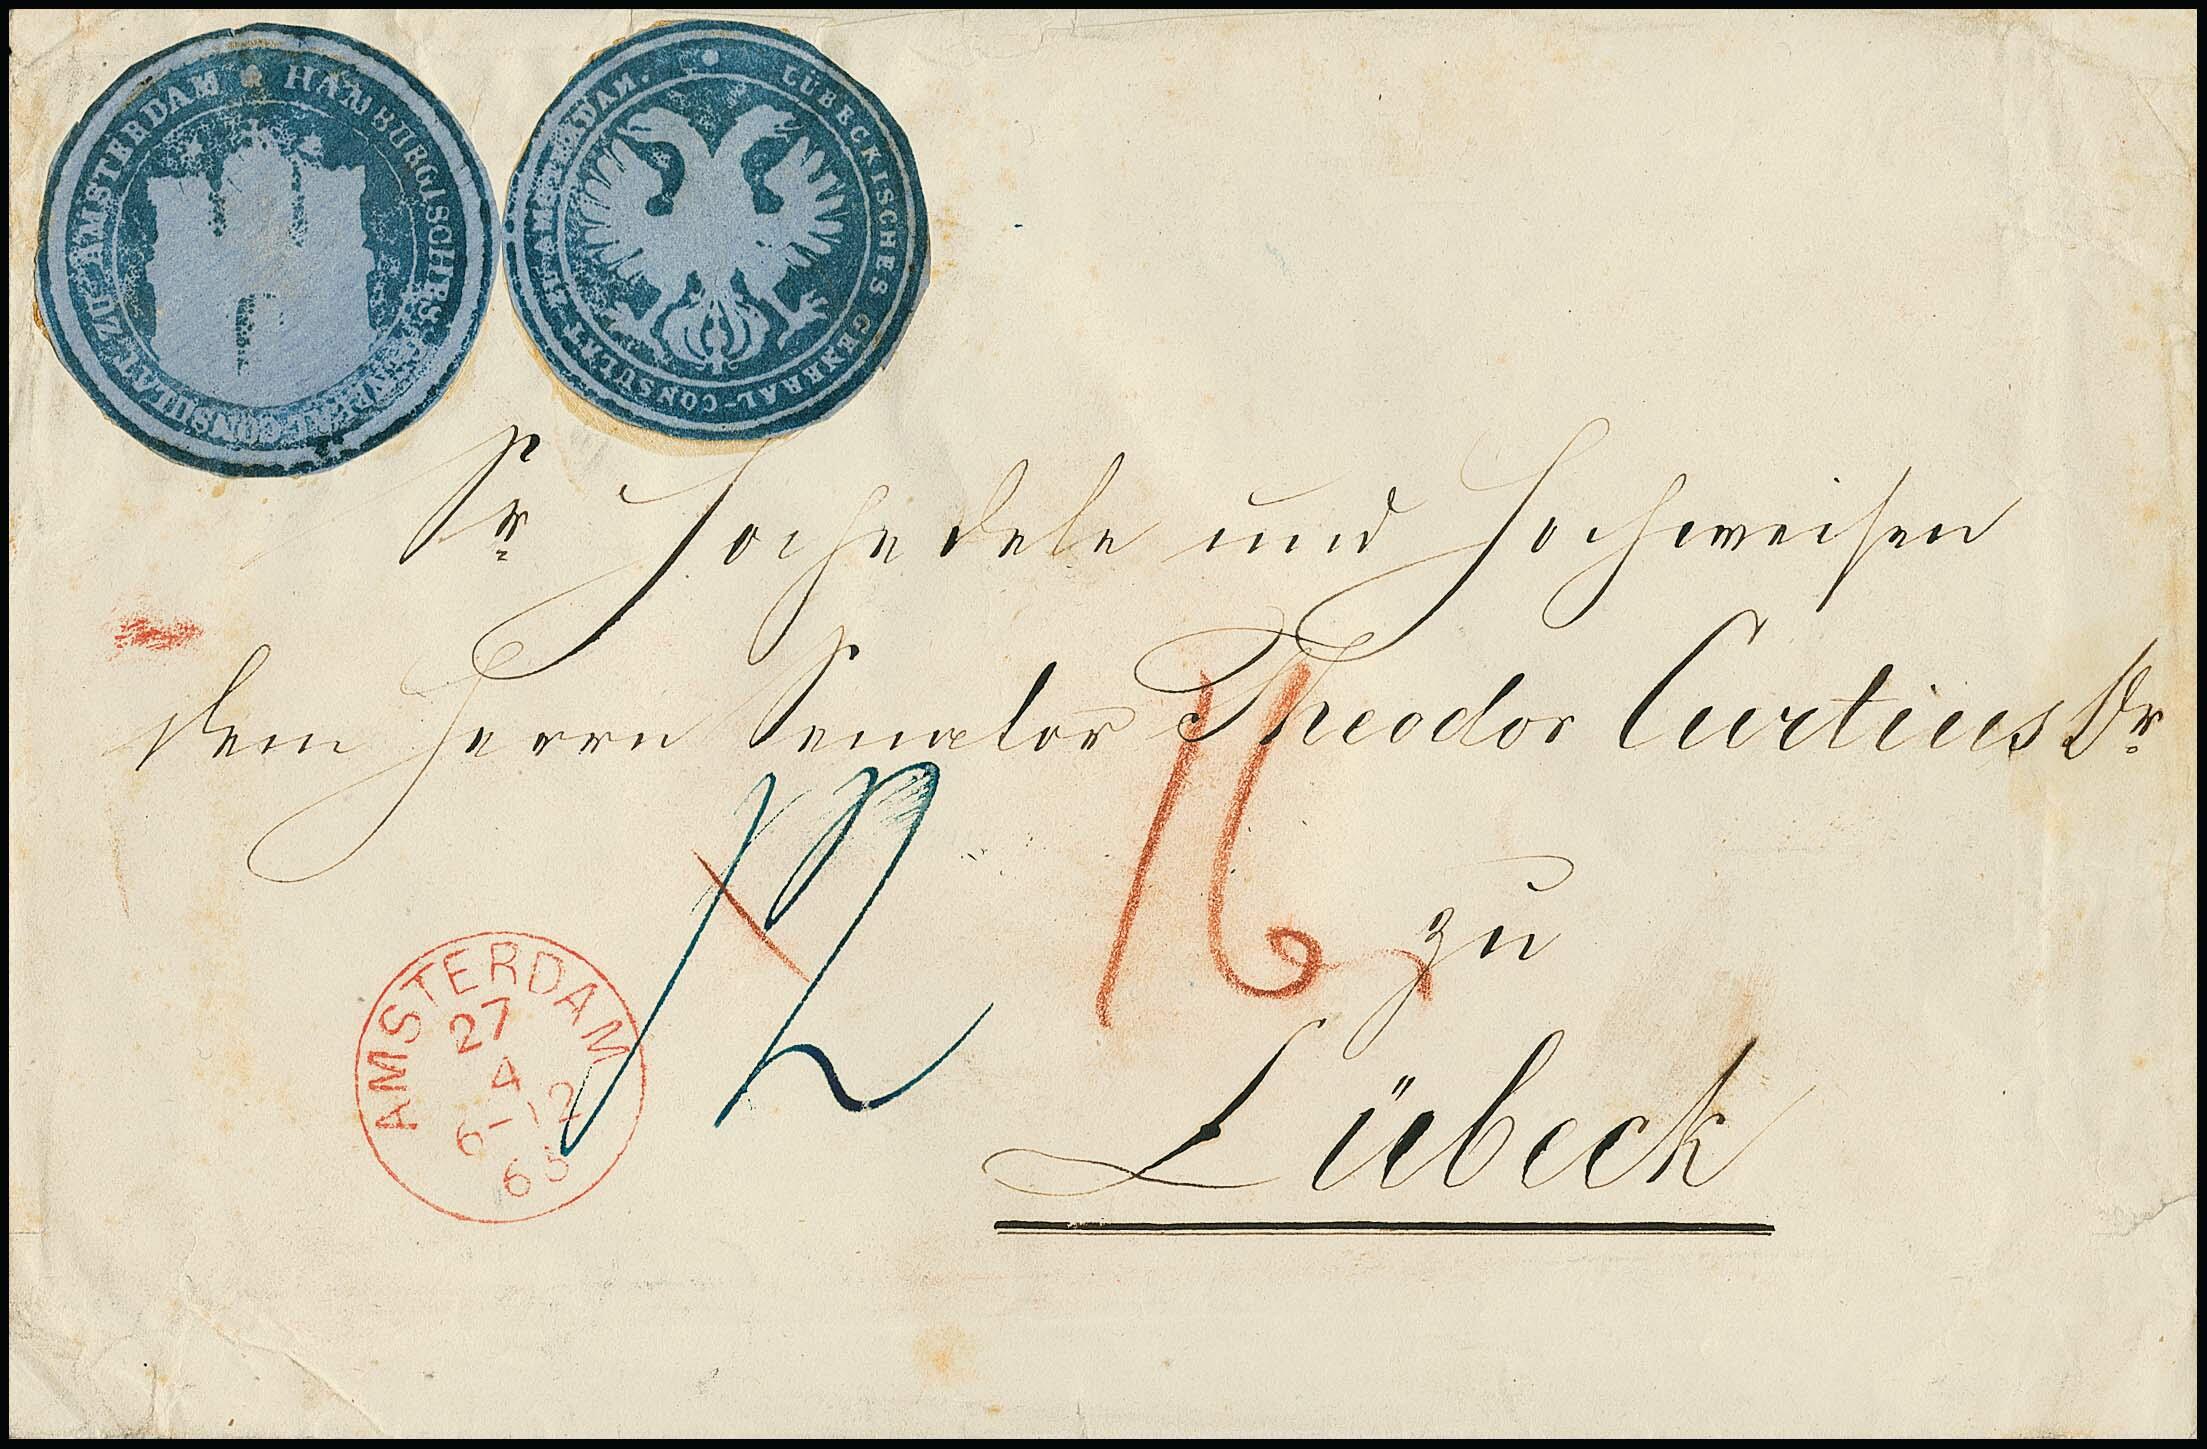 HAMBURGISCHES GENERAL-CONSULAT ZU AMSTERDAM
LÜBECKISCHES GENERAL-CONSULAT ZU AMSTERDAM.
Sr Hochedele und Hochweisen
dem Herrn Senator Theodor Curtius Dr
16
zu
Lübeck
AMSTERDAM
27
4
6-12
65
12